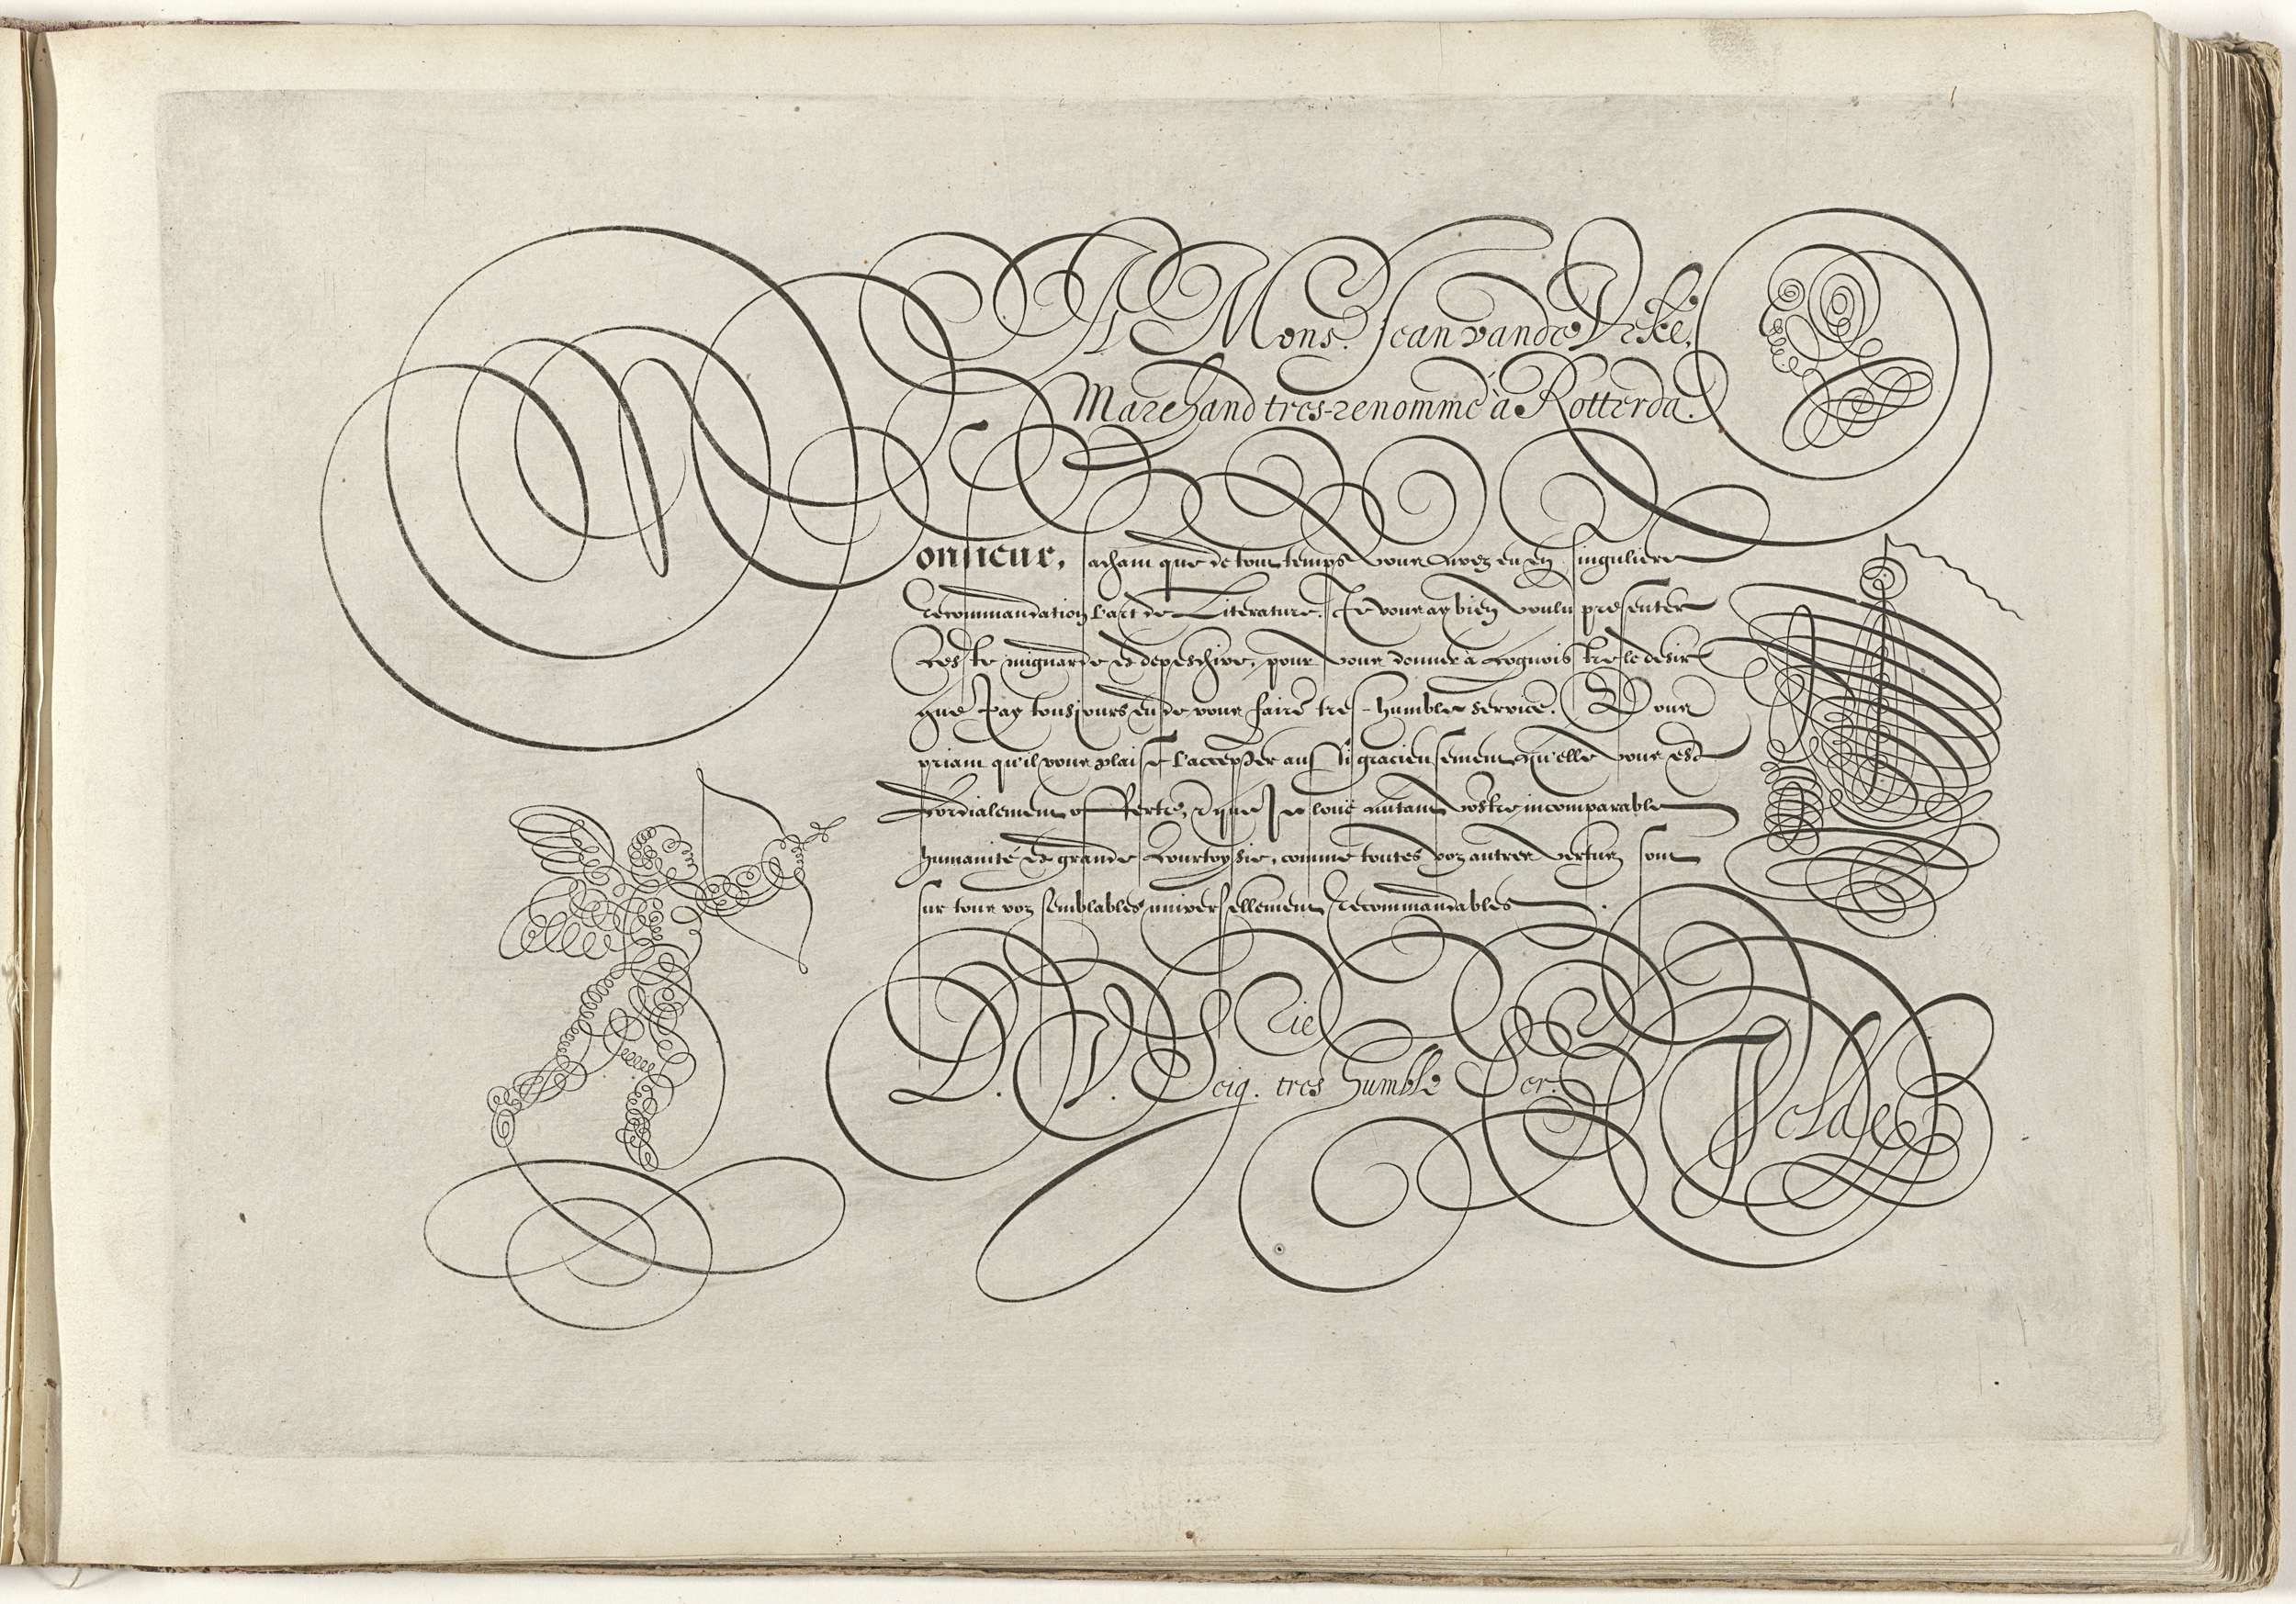 A Mons.r Jean vande Vrke,
Marchand tres-renommé à Rotterda.
Monsieur, sachant que de tout temps vous avez eu en singuliere
recommandation l'art de Literature, Je vous ay bien voulu presenter
ceste mignarde et depeschive, pour vous donner à cognoistre le desir
que J'ay tousjours eu de vous faire tres-humble service. Vous
priant qu'il vous plaise l'accepter aussi gracieusement, qu'elle vous est
cordialement offerte, et que Je loue autant vostre incomparable
humanité et grande courtoysie, comme toutes voz autres vertuz sont
sur tous voz semblables universellement recommandables.
D. V. Seig. tres humble Ser.
Velde